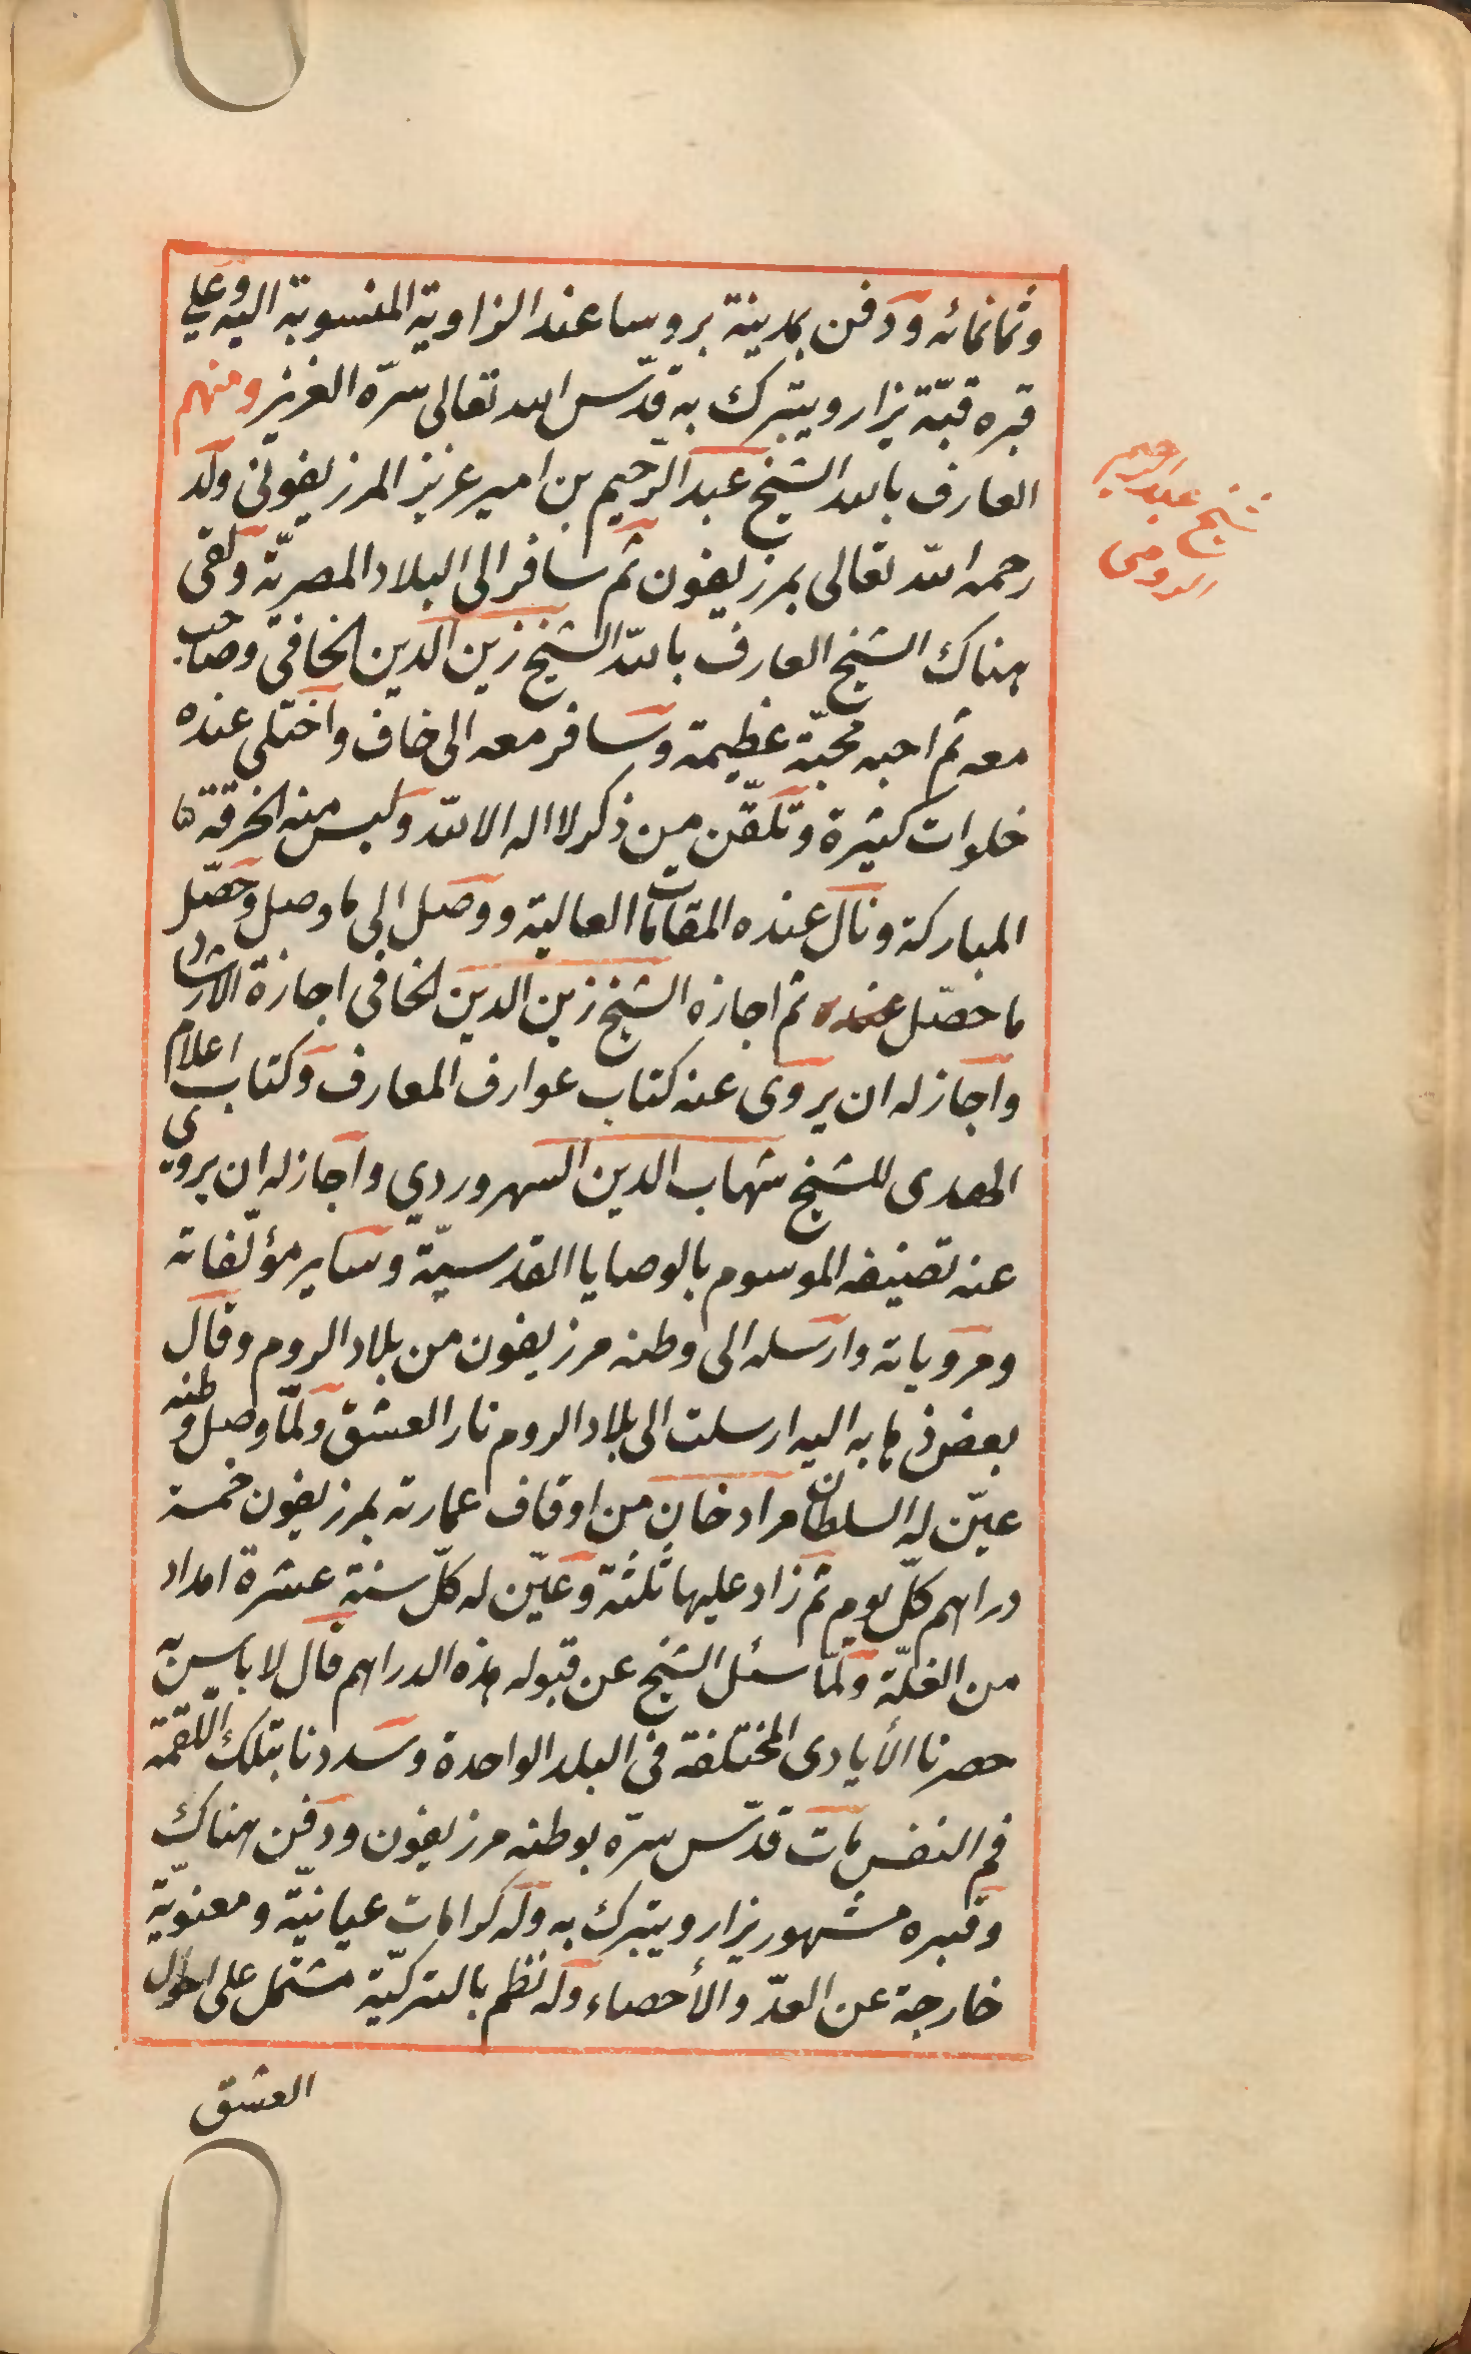 وثمانمائه ودفن بمدينة بروسا عند الزاوية المنسوبة اليه وعلي
قبره قبّة يزار ويتبرك به قدّس الله تعالى سرّه العزيز ومنهم
العارف بالله الشيخ عبد الرّحيم بن امير عزيز المرزيفونى ولد
شيخ عبد الرحيم
الرومى
رحمه الله تعالى بمرزيفون ثم سافر الى البلاد المصريّة ولقى
هناك الشيخ العارف بالله الشيخ زين الدين الخافى وصاحب
معه ثم احبه محبّة عظيمة وسافر معه الى خاف واختلى عنده
خلوات كثيرة وتلقّن من ذكر لا اله الا الله ولبس منه الخرقة
المباركة ونال عنده المقامات العالية ووصل الى ما وصل وحصّل
ما حصّل عنده ثم اجازه الشيخ زين الدين الخافى اجازة الارشاد
واجاز له ان يروى عنه كتاب عوارف المعارف وكتاب اعلام
الهدى للشيخ شهاب الدين السهروردي واجاز له ان يروى
عنه تصنيفه الموسوم بالوصايا القدسيّة وساير مؤلّفاته
ومروياته وارسله الى وطنه مرزيفون من بلاد الروم وقال
بعض ذهابه اليه ارسلت الى بلاد الروم نار العشق ولمّا وصل وطنه
عيّن له السلطان مراد خان من اوقاف عمارته بمرزيفون خمسة
دراهم كلّ يوم ثم زاد عليها ثلثة وعيّن له كلّ سنة عشرة امداد
من الغلّة ولمّا سئل الشيخ عن قبوله هذه الدراهم قال لا باس به
حصرنا الأيادى المختلفة فى البلد الواحدة وسددنا بتلك اللّقمة
فم النفس مات قدّس سرّه بوطنه مرزيفون ودفن هناك
وقبره مشهور يزار ويتبرك به وله كرامات عيانيّة ومعنويّة
خارجة عن العدّ والأحصاء وله نظم بالتركيّة مشتمل على احوال
العشق